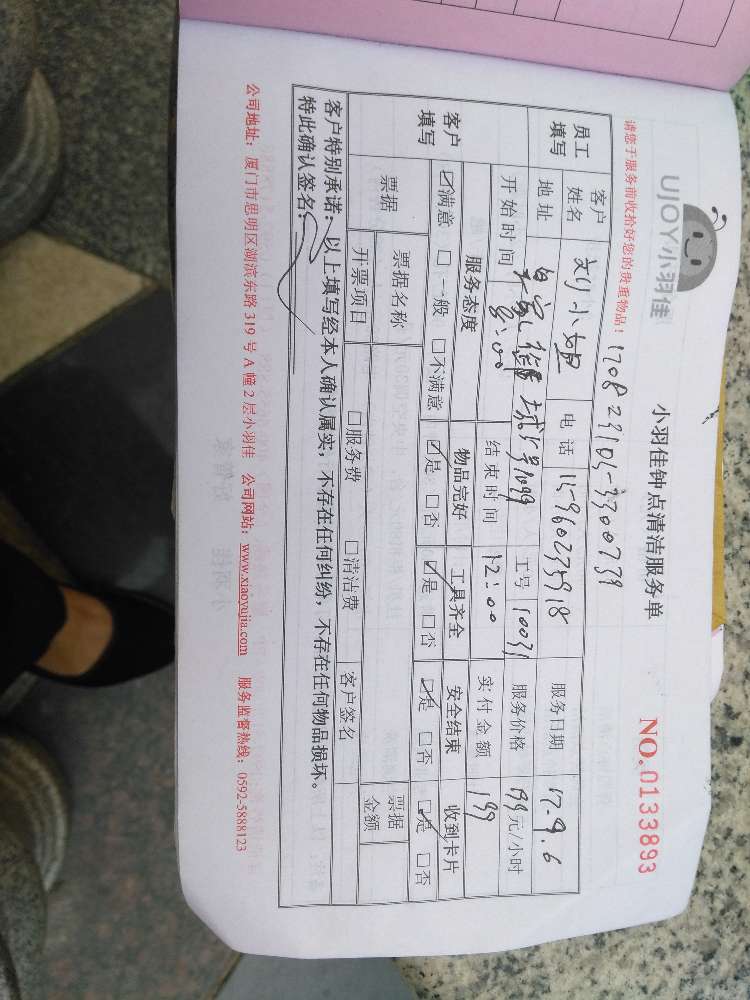 UJOY小羽佳
小羽佳钟点清洁服务单
NO. 0133893
请您于服务前收拾好您的贵重物品！
员工填写
客户姓名 刘小姐 电话 服务日期 17.9.6
地址 工号 服务价格 元/小时
开始时间 8:00 结束时间 12:00 实付金额 199
客户填写
服务态度 物品完好 工具齐全 安全结束 收到卡片
☑满意 □一般 □不满意 ☑是 □否 ☑是 □否 ☑是 □否 ☑是 □否
票据 票据名称 客户签名 票据金额
开票项目 □服务费 □清洁费
客户特别承诺：以上填写经本人确认属实，不存在任何纠纷，不存在任何物品损坏。
特此确认签名：
公司地址：厦门市思明区湖滨东路 319 号 A 幢 2 层小羽佳 公司网站：www.xiaoyujia.com 服务监督热线：0592-5888123